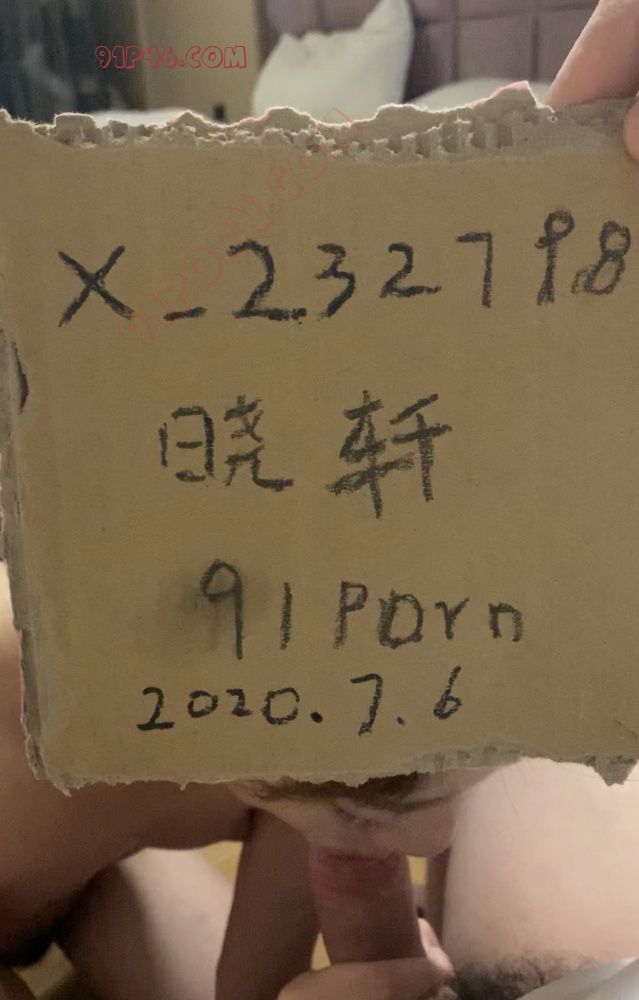 91P46.COM
91PORN.COM
X_232798
晓轩
91Porn
2020.7.6